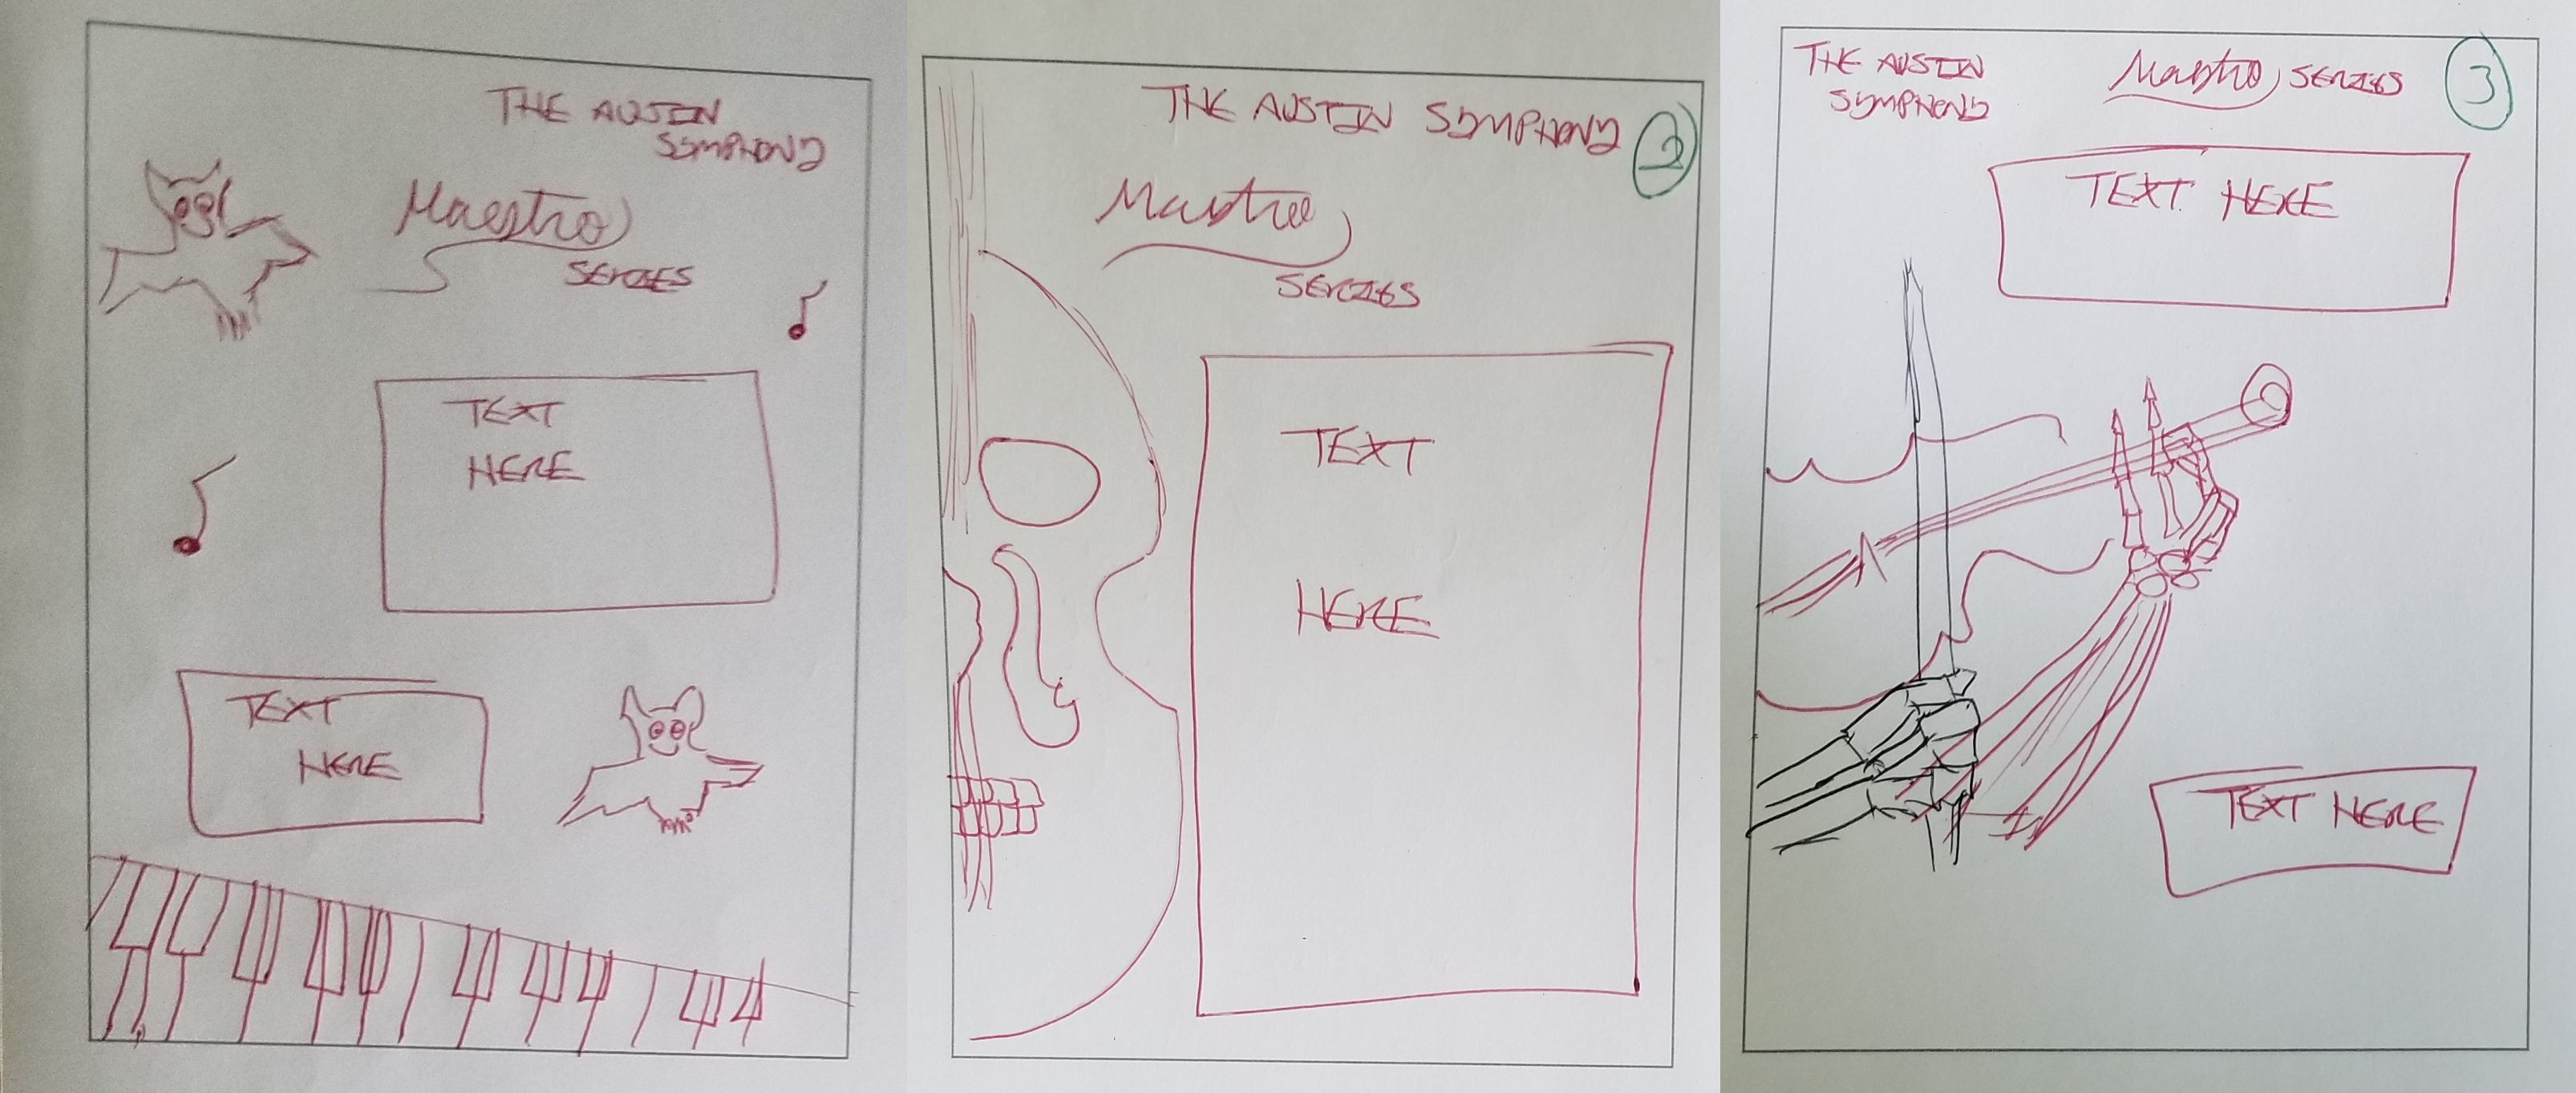 THE AUSTIN
SYMPHONY
Maestro
SERIES
TEXT
HERE
TEXT
HERE
THE AUSTIN SYMPHONY
2
Maestro
SERIES
TEXT
HERE
THE AUSTIN
SYMPHONY
Maestro SERIES
3
TEXT HERE
TEXT HERE